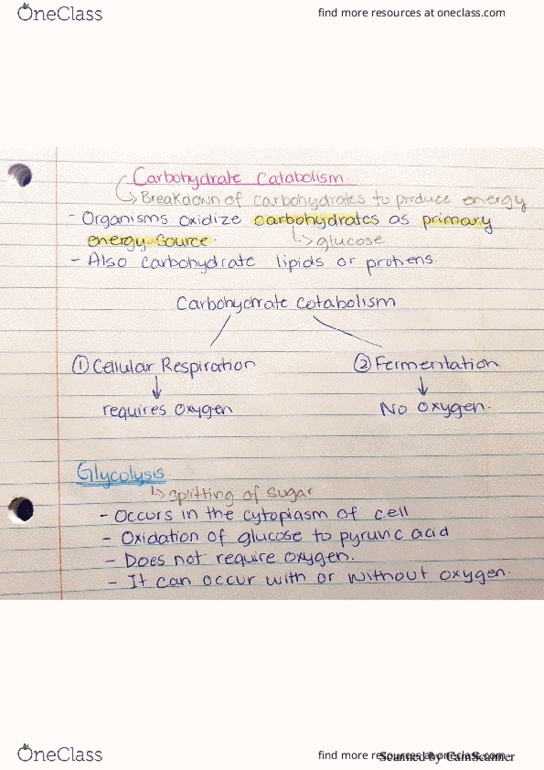 OneClass find more resources at oneclass.com
Carbohydrate Catabolism
↳ Breakdown of carbohydrates to produce energy
- Organisms oxidize carbohydrates as primary
energy source. ↳ glucose
- Also carbohydrate lipids or protiens.
Carbohydrate Catabolism
① Cellular Respiration ② Fermentation
↓ ↓
requires Oxygen No Oxygen.
Glycolysis
↳ splitting of sugar
- Occurs in the cytoplasm of cell
- Oxidation of glucose to pyruvic acid
- Does not require oxygen.
- It can occur with or without oxygen.
OneClass find more resources at oneclass.com
Scanned by CamScanner